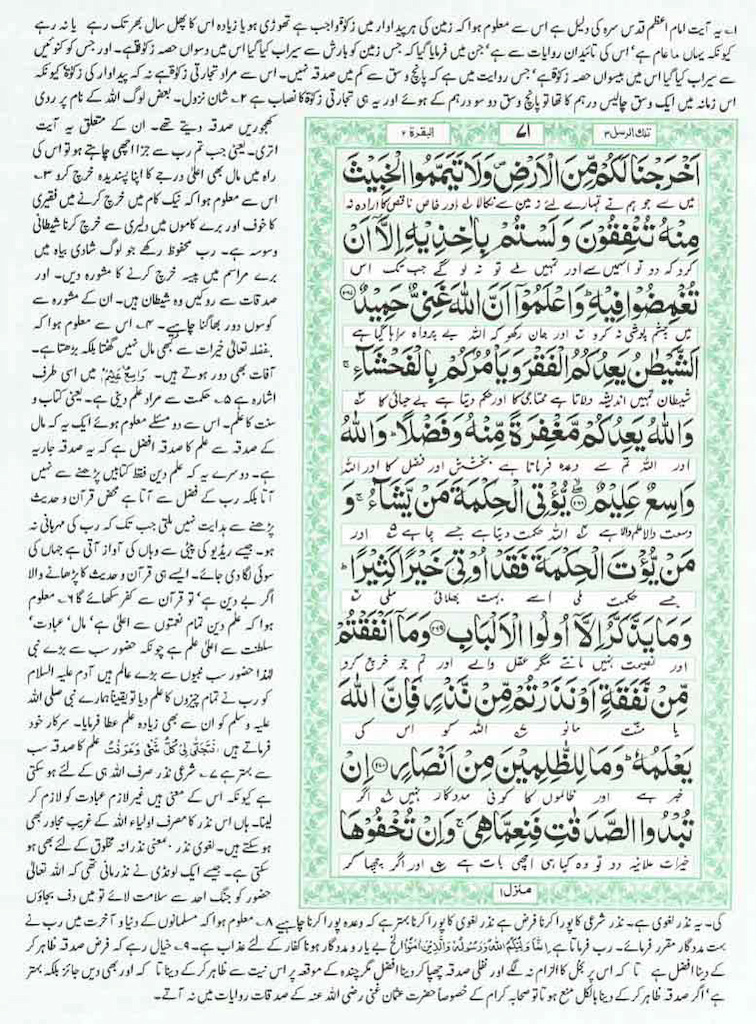 ۱؎ یہ آیت امام اعظم قدس سرہ کی دلیل ہے اس سے معلوم ہوا کہ زمین کی ہر پیداوار میں زکوٰۃ واجب ہے تھوڑی ہو یا زیادہ اس کا پھل سال بھر تک رہے یا نہ رہے
کیونکہ یہاں ما عام ہے' اس کی تائید ان روایات سے ہے' جن میں فرمایا گیا کہ جس زمین کو بارش سے سیراب کیا گیا اس میں دسواں حصہ زکوٰۃ ہے۔ اور جس کو کنوئیں
سے سیراب کیا گیا اس میں بیسواں حصہ زکوٰۃ ہے' جس روایت میں ہے کہ پانچ وسق سے کم میں صدقہ نہیں۔ اس سے مراد تجارتی زکوٰۃ ہے نہ کہ پیداوار کی زکوٰۃ کیونکہ
اس زمانہ میں ایک وسق چالیس درہم کا تھا تو پانچ وسق دو سو درہم کے ہوئے اور یہ ہی تجارتی زکوٰۃ کا نصاب ہے ۲؎ شان نزول۔ بعض لوگ اللہ کے نام پر روی
تلک الرسل ۳
۷۱
البقرة ۲
اَخْرَجْنَا لَكُمْ مِّنَ الْاَرْضِ وَلَا تَيَمَّمُوا الْخَبِيْثَ
میں سے جو ہم نے تمہارے لئے زمین سے نکالا اور خاص ناقص کا ارادہ نہ
مِنْهُ تُنْفِقُوْنَ وَلَسْتُمْ بِاٰخِذِيْهِ اِلَّاۤ اَنْ
کرو کہ دو تو اس میں سے اور تمہیں ملے تو نہ لو گے جب تک اس
تُغْمِضُوْا فِيْهِ وَاعْلَمُوْۤا اَنَّ اللّٰهَ غَنِيٌّ حَمِيْدٌ
میں چشم پوشی نہ کرو اور جان رکھو کہ اللہ بے پرواہ سراہا گیا ہے
اَلشَّيْطٰنُ يَعِدُكُمُ الْفَقْرَ وَيَاْمُرُكُمْ بِالْفَحْشَآءِ
شیطان تمہیں اندیشہ دلاتا ہے محتاجی کا اور حکم دیتا ہے بے حیائی کا
وَاللّٰهُ يَعِدُكُمْ مَّغْفِرَةً مِّنْهُ وَفَضْلًا وَاللّٰهُ
اور اللہ تم سے وعدہ فرماتا ہے بخشش اور فضل کا اور اللہ
وَاسِعٌ عَلِيْمٌ يُّؤْتِى الْحِكْمَةَ مَنْ يَّشَآءُ وَ
وسعت والا علم والا ہے اللہ حکمت دیتا ہے جسے چاہے اور
مَنْ يُّؤْتَ الْحِكْمَةَ فَقَدْ اُوْتِىَ خَيْرًا كَثِيْرًا
جسے حکمت ملی اسے بہت بھلائی ملی
وَمَا يَذَّكَّرُ اِلَّاۤ اُولُوا الْاَلْبَابِ وَمَاۤ اَنْفَقْتُمْ
اور نصیحت نہیں مانتے مگر عقل والے اور تم جو خرچ کرو
مِّنْ نَّفَقَةٍ اَوْ نَذَرْتُمْ مِّنْ نَّذْرٍ فَاِنَّ اللّٰهَ
یا منت مانو اللہ کو اس کی
يَعْلَمُهٗ وَمَا لِلظّٰلِمِيْنَ مِنْ اَنْصَارٍ اِنْ
خبر ہے اور ظالموں کا کوئی مددگار نہیں اگر
تُبْدُوا الصَّدَقٰتِ فَنِعِمَّا هِىَ وَاِنْ تُخْفُوْهَا
خیرات علانیہ دو تو وہ کیا ہی اچھی بات ہے اور اگر چھپا کر
منزل ۱
کھجوریں صدقہ دیتے تھے۔ ان کے متعلق یہ آیت
اتری۔ یعنی جب تم رب سے جزا اچھی چاہتے ہو تو اس کی
راہ میں مال بھی اعلیٰ درجے کا اپنا پسندیدہ خرچ کرو ۳؎
اس سے معلوم ہوا کہ نیک کام میں خرچ کرنے میں فقیری
کا خوف اور برے کاموں میں دلیری سے خرچ کرنا شیطانی
وسوسہ ہے۔ رب محفوظ رکھے جو لوگ شادی بیاہ میں
برے مراسم میں پیسہ خرچ کرنے کا مشورہ دیں۔ اور
صدقات سے روکیں وہ شیطان ہیں۔ ان کے مشورہ سے
کوسوں دور بھاگنا چاہیے۔ ۴؎ اس سے معلوم ہوا کہ
بفضلہ تعالیٰ خیرات سے کبھی مال نہیں گھٹتا بلکہ بڑھتا ہے۔
آفات بھی دور ہوتے ہیں۔ وَاسِعٌ عَلِيْمٌ میں اسی طرف
اشارہ ہے ۵؎ حکمت سے مراد علم دینی ہے۔ یعنی کتاب و
سنت کا علم۔ اس سے دو مسئلے معلوم ہوئے ایک یہ کہ مال
کے صدقہ سے علم کا صدقہ افضل ہے کہ یہ صدقہ جاریہ
ہے۔ دوسرے یہ کہ علم دین فقط کتابیں پڑھنے سے نہیں
آتا بلکہ رب کے فضل سے آتا ہے محض قرآن و حدیث
پڑھنے سے ہدایت نہیں ملتی جب تک کہ رب کی مہربانی نہ
ہو۔ جیسے ریڈیو کی پیٹی سے وہاں کی آواز آتی ہے جہاں کی
سوئی لگا دی جائے۔ ایسے ہی قرآن و حدیث کا پڑھانے والا
اگر بے دین ہے' تو قرآن سے کفر سکھائے گا ۶؎ معلوم
ہوا کہ علم دین تمام نعمتوں سے اعلیٰ ہے' مال' عبادت'
سلطنت سے اعلیٰ علم ہے چونکہ حضور سب سے بڑے نبی
لہٰذا حضور سب نبیوں سے بڑے عالم ہیں آدم علیہ السلام
کو رب نے تمام چیزوں کا علم دیا تو یقیناً ہمارے نبی صلی اللہ
علیہ وسلم کو ان سے بھی زیادہ علم عطا فرمایا۔ سرکار خود
فرماتے ہیں فَتَجَلّٰى لِىْ كُلُّ شَىْءٍ وَّعَرَفْتُ علم کا صدقہ سب
سے بہتر ہے ۷؎ شرعی نذر صرف اللہ ہی کے لئے ہو سکتی
ہے کیونکہ اس کے معنی ہیں غیر لازم عبادت کو لازم کر
لینا۔ ہاں اس نذر کا مصرف اولیاء اللہ کے غریب مجاور بھی
ہو سکتے ہیں۔ لغوی نذر، بمعنی نذرانہ مخلوق کے لئے بھی ہو
سکتی ہے۔ جیسے ایک لونڈی نے نذر مانی تھی کہ اللہ تعالیٰ
حضور کو جنگ احد سے سلامت لائے تو میں دف بجاؤں
گی۔ یہ نذر لغوی ہے۔ نذر شرعی کا پورا کرنا فرض ہے نذر لغوی کا پورا کرنا بہتر ہے کہ وعدہ پورا کرنا چاہیے ۸؎ معلوم ہوا کہ مسلمانوں کے دنیا و آخرت میں رب نے
بہت مددگار مقرر فرمائے۔ رب فرماتا ہے اِنَّمَا وَلِيُّكُمُ اللّٰهُ وَرَسُوْلُهٗ وَالَّذِيْنَ اٰمَنُوْا الخ بے یار و مددگار ہونا کفار کے لئے عذاب ہے۔ ۹؎ خیال رہے کہ فرض صدقہ ظاہر کر
کے دینا افضل ہے تا کہ اس پر بخل کا الزام نہ لگے اور نفلی صدقہ چھپا کر دینا افضل مگر چندہ کے موقعہ پر اس نیت سے ظاہر کر کے دینا تا کہ اور بھی دیں جائز بلکہ بہتر
ہے' اگر صدقہ ظاہر کر کے دینا بالکل منع ہوتا تو صحابہ کرام کے خصوصاً حضرت عثمان غنی رضی اللہ عنہ کے صدقات روایات میں نہ آتے۔